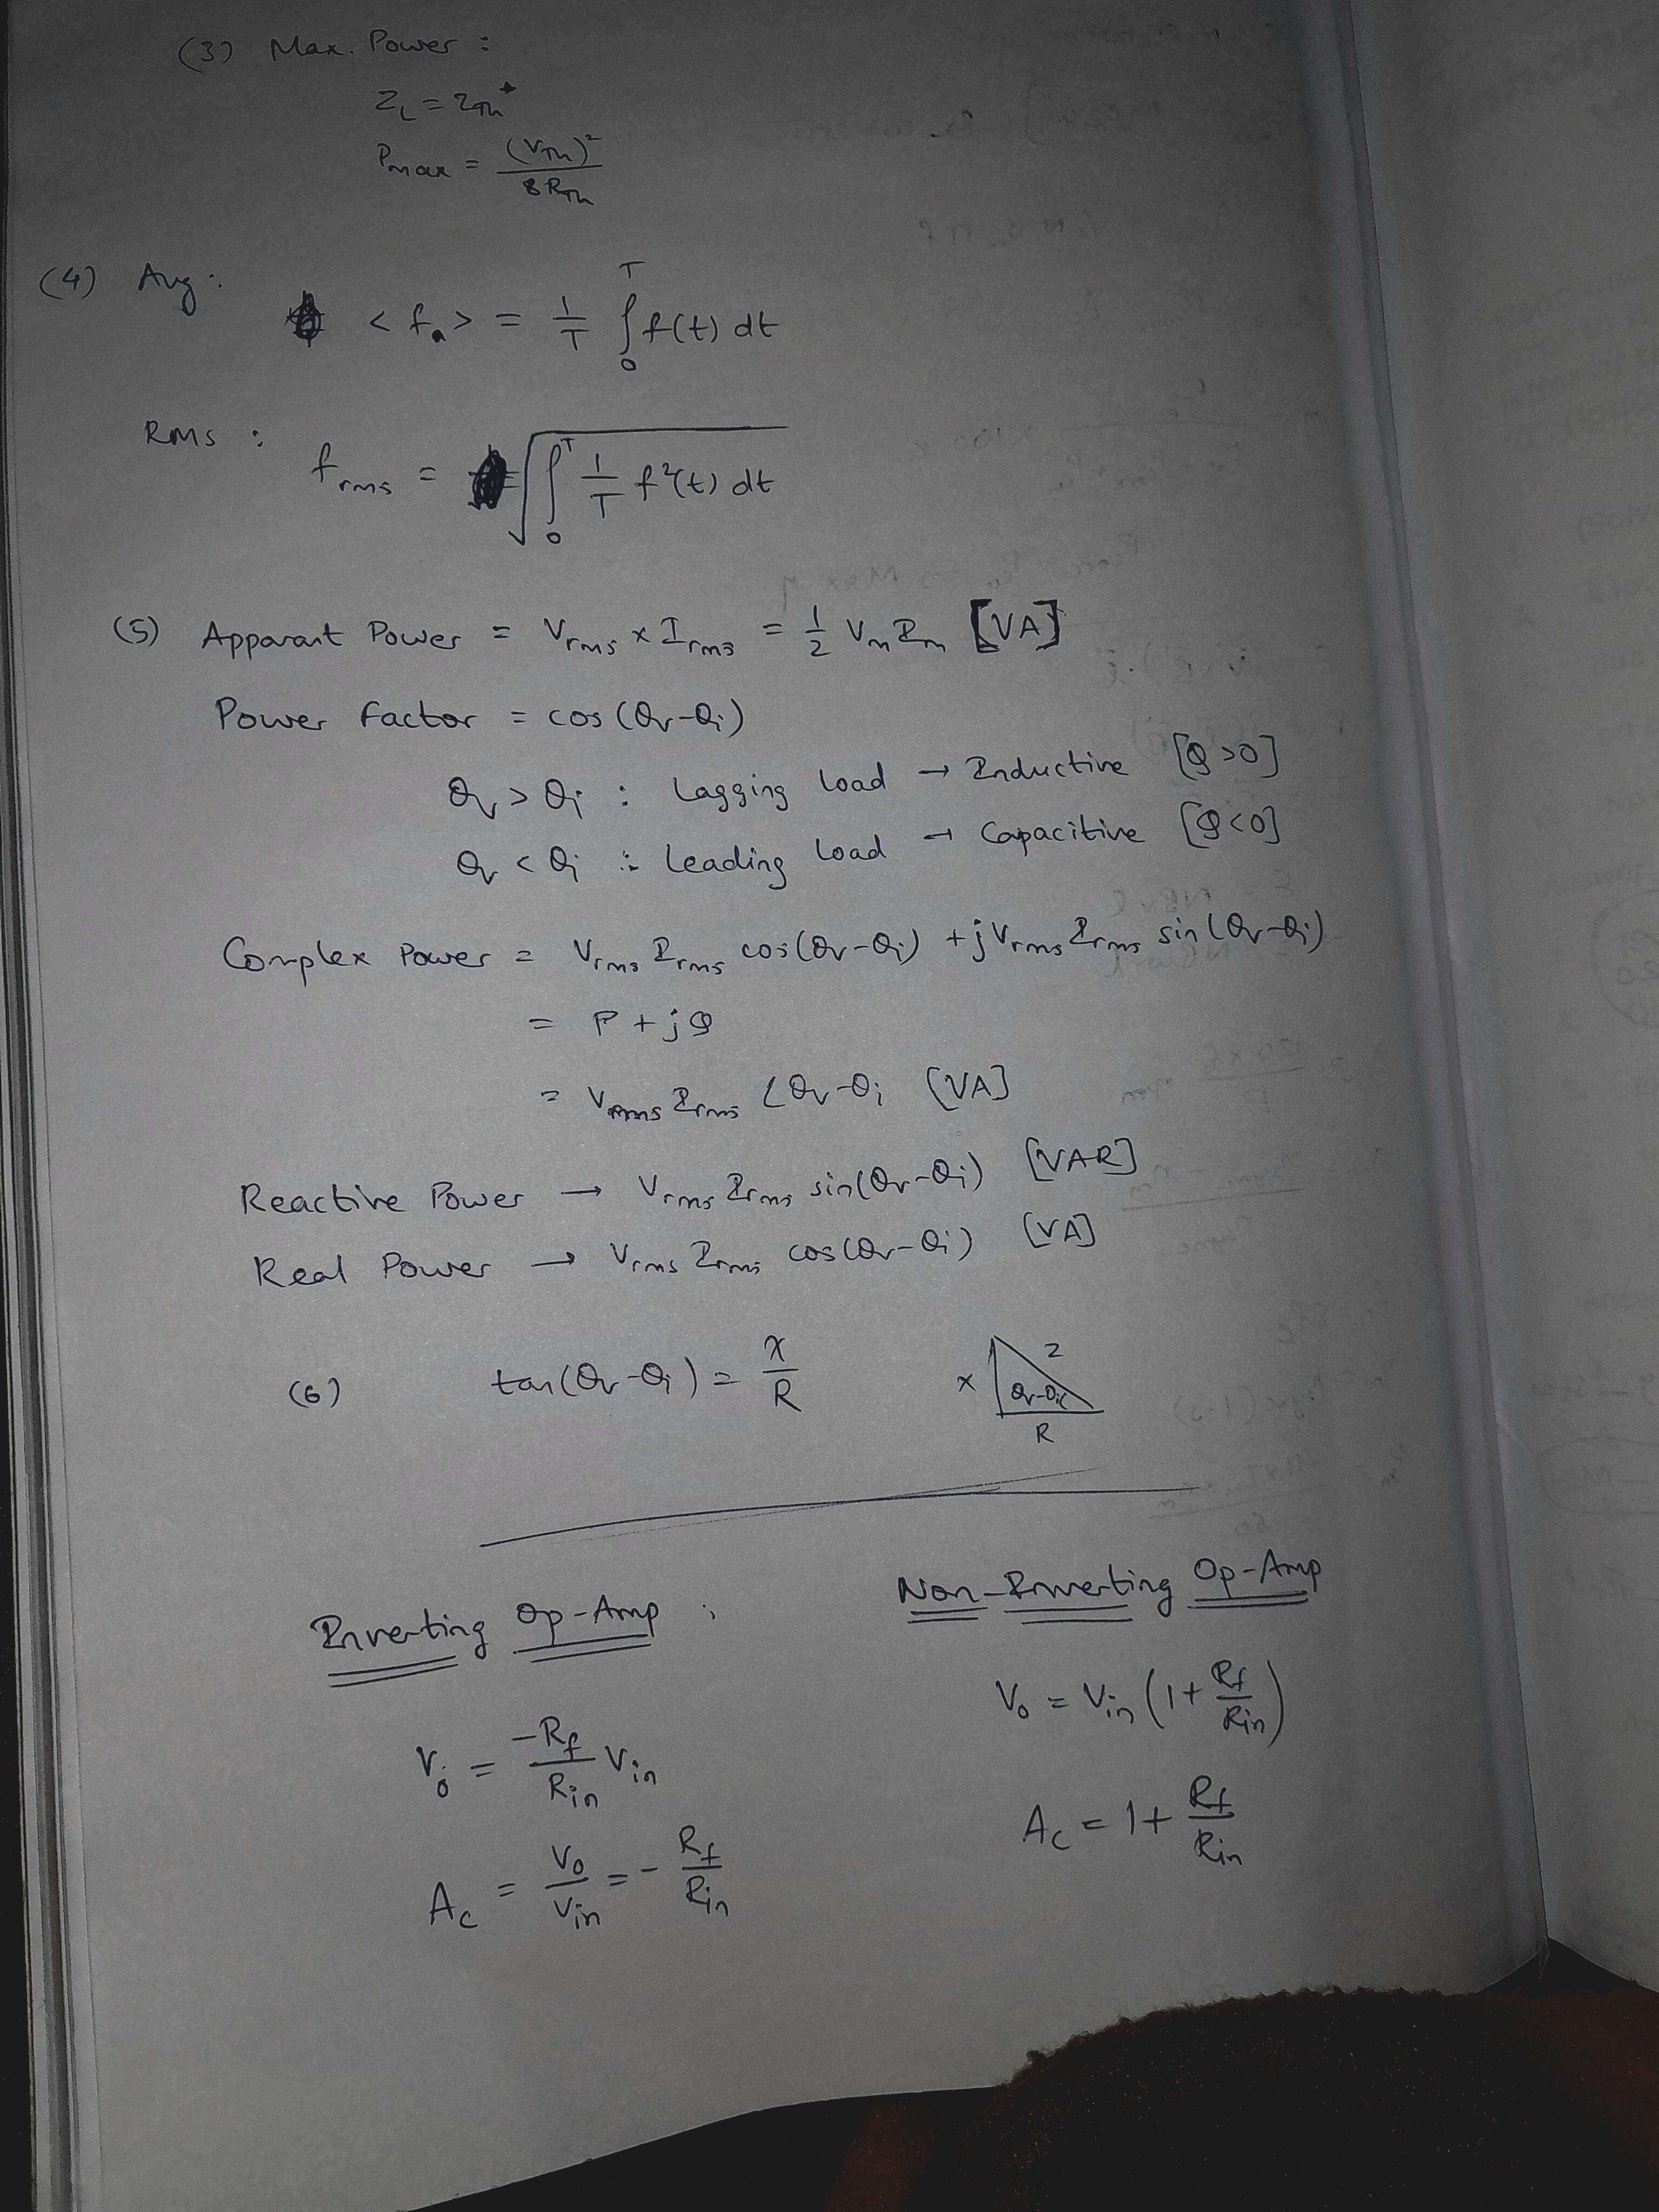 (3) Max. Power :
Z_L = Z_Th*
P_max = (V_Th)² / 8 R_Th
(4) Avg :
< f > = 1/T ∫₀ᵀ f(t) dt
RMS :
f_rms = √( ∫₀ᵀ 1/T f²(t) dt )
(5) Apparant Power = V_rms x I_rms = 1/2 V_m I_m [VA]
Power factor = cos(θv-θi)
θv > θi : Lagging load → Inductive [Q>0]
θv < θi : Leading load → Capacitive [Q<0]
Complex Power = V_rms I_rms cos(θv-θi) + j V_rms I_rms sin(θv-θi)
= P + jQ
= V_rms I_rms ∠θv-θi [VA]
Reactive Power → V_rms I_rms sin(θv-θi) [VAR]
Real Power → V_rms I_rms cos(θv-θi) [VA]
(6) tan(θv-θi) = X/R
X Z θv-θi
R
Inverting Op-Amp :
V_o = -R_f/R_in V_in
A_c = V_o/V_in = - R_f/R_in
Non-Inverting Op-Amp
V_o = V_in (1 + R_f/R_in)
A_c = 1 + R_f/R_in